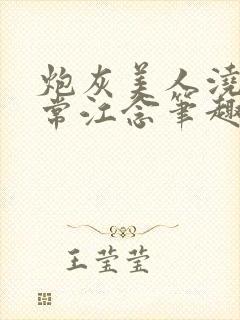 炮灰美人浇
常江念笔趣
王莹莹